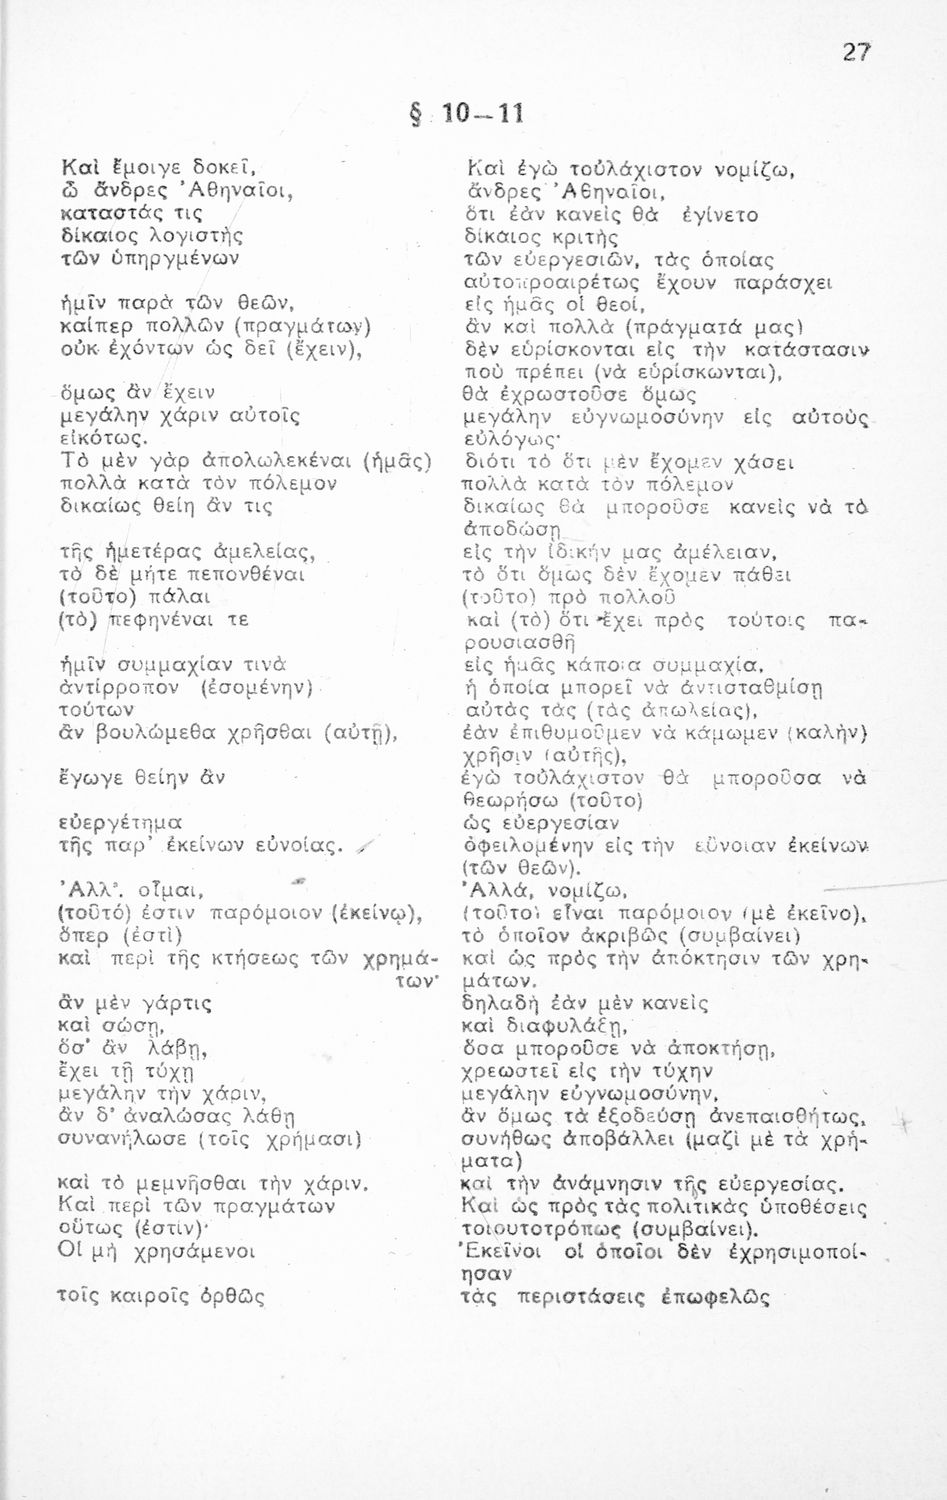 27
§ 10—11
Καὶ ἔμοιγε δοκεῖ,
ὦ ἄνδρες Ἀθηναῖοι,
καταστάς τις
δίκαιος λογιστὴς
τῶν ὑπηργμένων
ἡμῖν παρὰ τῶν θεῶν,
καίπερ πολλῶν (πραγμάτων)
οὐκ ἐχόντων ὡς δεῖ (ἔχειν),
ὅμως ἂν ἔχειν
μεγάλην χάριν αὐτοῖς
εἰκότως.
Τὸ μὲν γὰρ ἀπολωλεκέναι (ἡμᾶς)
πολλὰ κατὰ τὸν πόλεμον
δικαίως θείη ἄν τις
τῆς ἡμετέρας ἀμελείας,
τὸ δὲ μήτε πεπονθέναι
(τοῦτο) πάλαι
(τὸ) πεφηνέναι τε
ἡμῖν συμμαχίαν τινὰ
ἀντίρροπον (ἐσομένην)
τούτων
ἂν βουλώμεθα χρῆσθαι (αὐτῇ),
ἔγωγε θείην ἂν
εὐεργέτημα
τῆς παρ' ἐκείνων εὐνοίας.
Ἀλλ'. οἶμαι,
(τοῦτό) ἐστιν παρόμοιον (ἐκείνῳ),
ὅπερ (ἐστὶ)
καὶ περὶ τῆς κτήσεως τῶν χρημά-
των·
ἂν μὲν γάρτις
καὶ σώσῃ,
ὅσ' ἂν λάβῃ,
ἔχει τῇ τύχῃ
μεγάλην τὴν χάριν,
ἂν δ' ἀναλώσας λάθῃ
συνανήλωσε (τοῖς χρήμασι)
καὶ τὸ μεμνῆσθαι τὴν χάριν.
Καὶ περὶ τῶν πραγμάτων
οὕτως (ἐστίν)·
Οἱ μὴ χρησάμενοι
τοῖς καιροῖς ὀρθῶς
Καὶ ἐγὼ τοὐλάχιστον νομίζω,
ἄνδρες Ἀθηναῖοι,
ὅτι ἐὰν κανεὶς θὰ ἐγίνετο
δίκαιος κριτὴς
τῶν εὐεργεσιῶν, τὰς ὁποίας
αὐτοπροαιρέτως ἔχουν παράσχει
εἰς ἡμᾶς οἱ θεοί,
ἂν καὶ πολλὰ (πράγματά μας)
δὲν εὑρίσκονται εἰς τὴν κατάστασιν
ποὺ πρέπει (νὰ εὑρίσκωνται),
θὰ ἐχρωστοῦσε ὅμως
μεγάλην εὐγνωμοσύνην εἰς αὐτοὺς
εὐλόγως·
διότι τὸ ὅτι μὲν ἔχομεν χάσει
πολλὰ κατὰ τὸν πόλεμον
δικαίως θὰ μποροῦσε κανεὶς νὰ τὸ
ἀποδώσῃ
εἰς τὴν ἰδικήν μας ἀμέλειαν,
τὸ ὅτι ὅμως δὲν ἔχομεν πάθει
(τοῦτο) πρὸ πολλοῦ
καὶ (τὸ) ὅτι ἔχει πρὸς τούτοις πα-
ρουσιασθῆ
εἰς ἡμᾶς κάποια συμμαχία,
ἡ ὁποία μπορεῖ νὰ ἀντισταθμίσῃ
αὐτὰς τὰς (τὰς ἀπωλείας),
ἐὰν ἐπιθυμοῦμεν νὰ κάμωμεν (καλὴν)
χρῆσιν (αὐτῆς),
ἐγὼ τοὐλάχιστον θὰ μποροῦσα νὰ
θεωρήσω (τοῦτο)
ὡς εὐεργεσίαν
ὀφειλομένην εἰς τὴν εὔνοιαν ἐκείνων
(τῶν θεῶν).
Ἀλλά, νομίζω,
(τοῦτο) εἶναι παρόμοιον (μὲ ἐκεῖνο),
τὸ ὁποῖον ἀκριβῶς (συμβαίνει)
καὶ ὡς πρὸς τὴν ἀπόκτησιν τῶν χρη-
μάτων.
δηλαδὴ ἐὰν μὲν κανεὶς
καὶ διαφυλάξῃ,
ὅσα μποροῦσε νὰ ἀποκτήσῃ,
χρεωστεῖ εἰς τὴν τύχην
μεγάλην εὐγνωμοσύνην,
ἂν ὅμως τὰ ἐξοδεύσῃ ἀνεπαισθήτως,
συνήθως ἀποβάλλει (μαζὶ μὲ τὰ χρή-
ματα)
καὶ τὴν ἀνάμνησιν τῆς εὐεργεσίας.
Καὶ ὡς πρὸς τὰς πολιτικὰς ὑποθέσεις
τοιουτοτρόπως (συμβαίνει).
Ἐκεῖνοι οἱ ὁποῖοι δὲν ἐχρησιμοποί-
ησαν
τὰς περιστάσεις ἐπωφελῶς